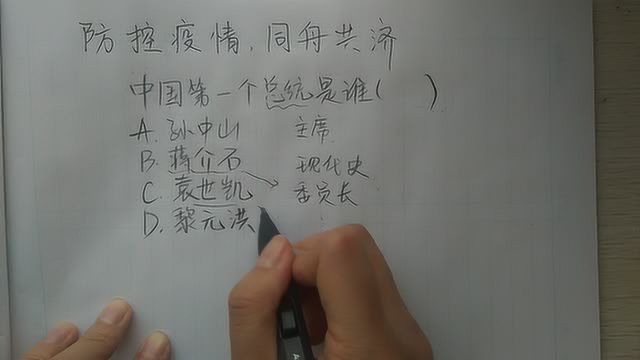 防控疫情,同舟共济
中国第一个总统是谁( )
A. 孙中山 主席
B. 蒋介石 现代史
C. 袁世凯 委员长
D. 黎元洪